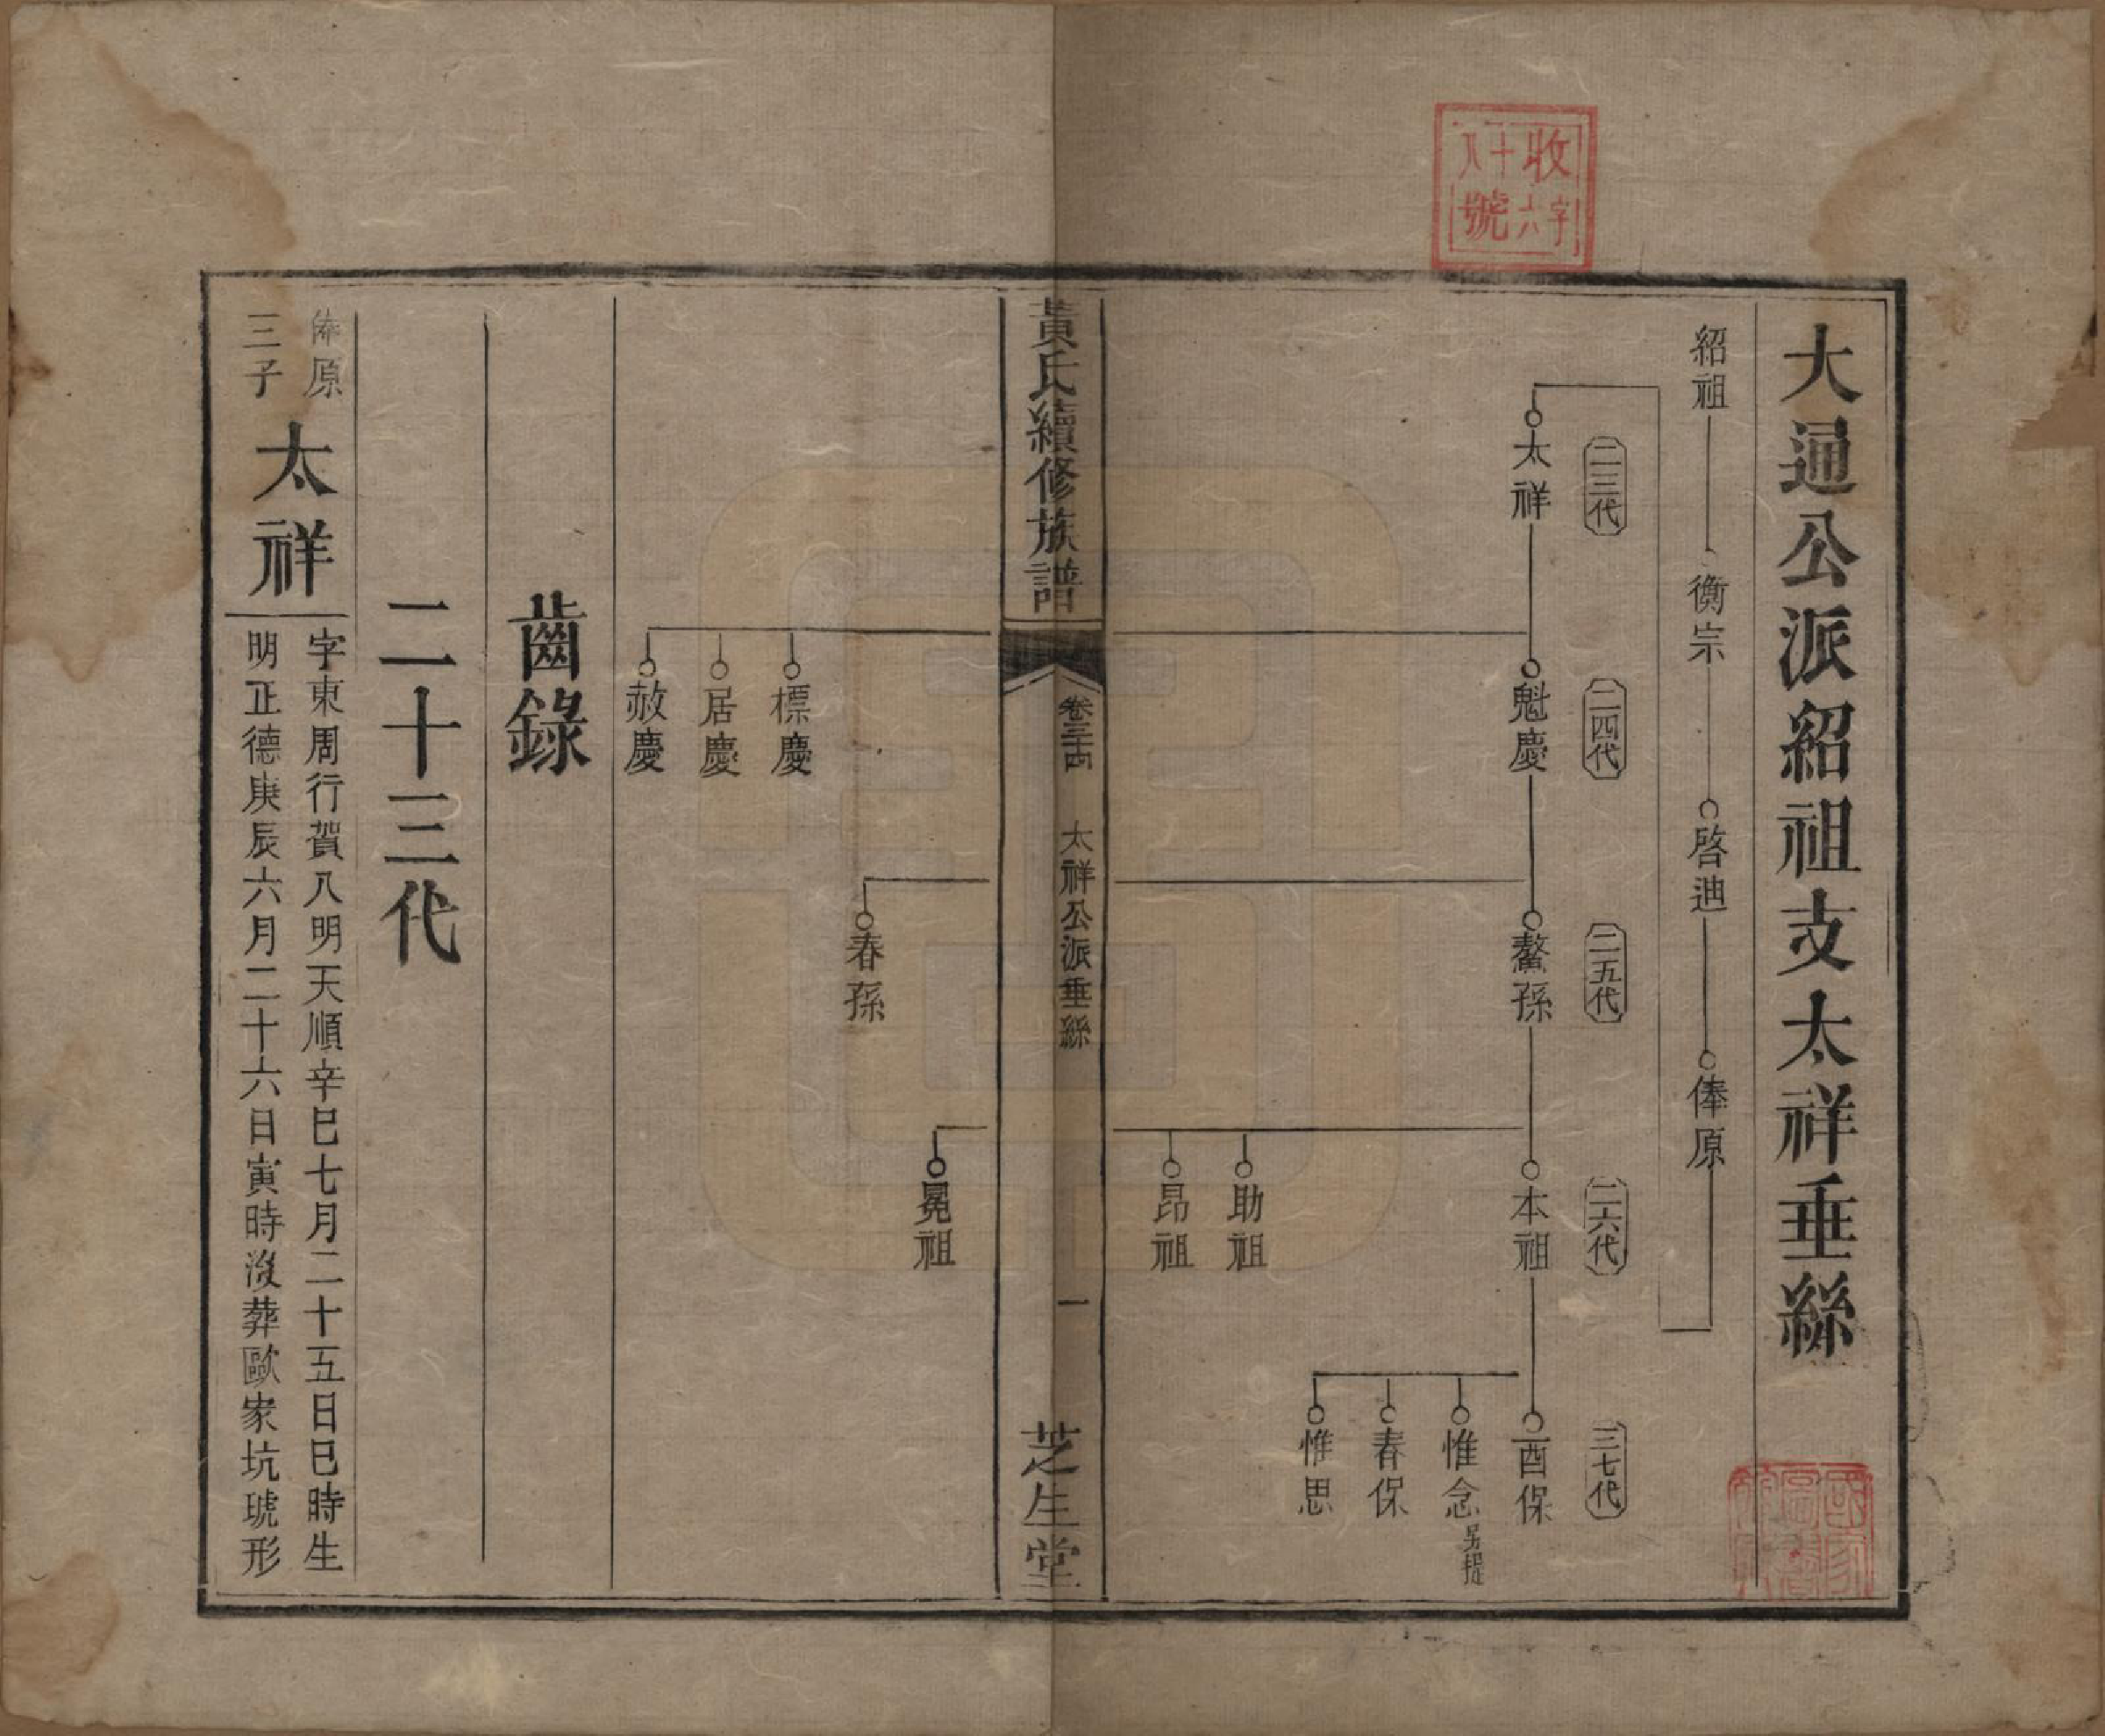 收字
十六
八號
大通公派紹祖支太祥垂絲
紹祖
衡宗
啓迪
俸原
二三代
二四代
二五代
二六代
二七代
太祥
魁慶
鰲孫
本祖
酉保
惟念 另提
春保
惟思
助祖
昂祖
黃氏續修族譜
卷三十四
太祥公派垂絲
一
芝生堂
冕祖
春孫
標慶
居慶
赦慶
齒錄
二十三代
俸原
三子
太祥
字東周行賀八明天順辛巳七月二十五日巳時生
明正德庚辰六月二十六日寅時沒葬歐家坑琥形